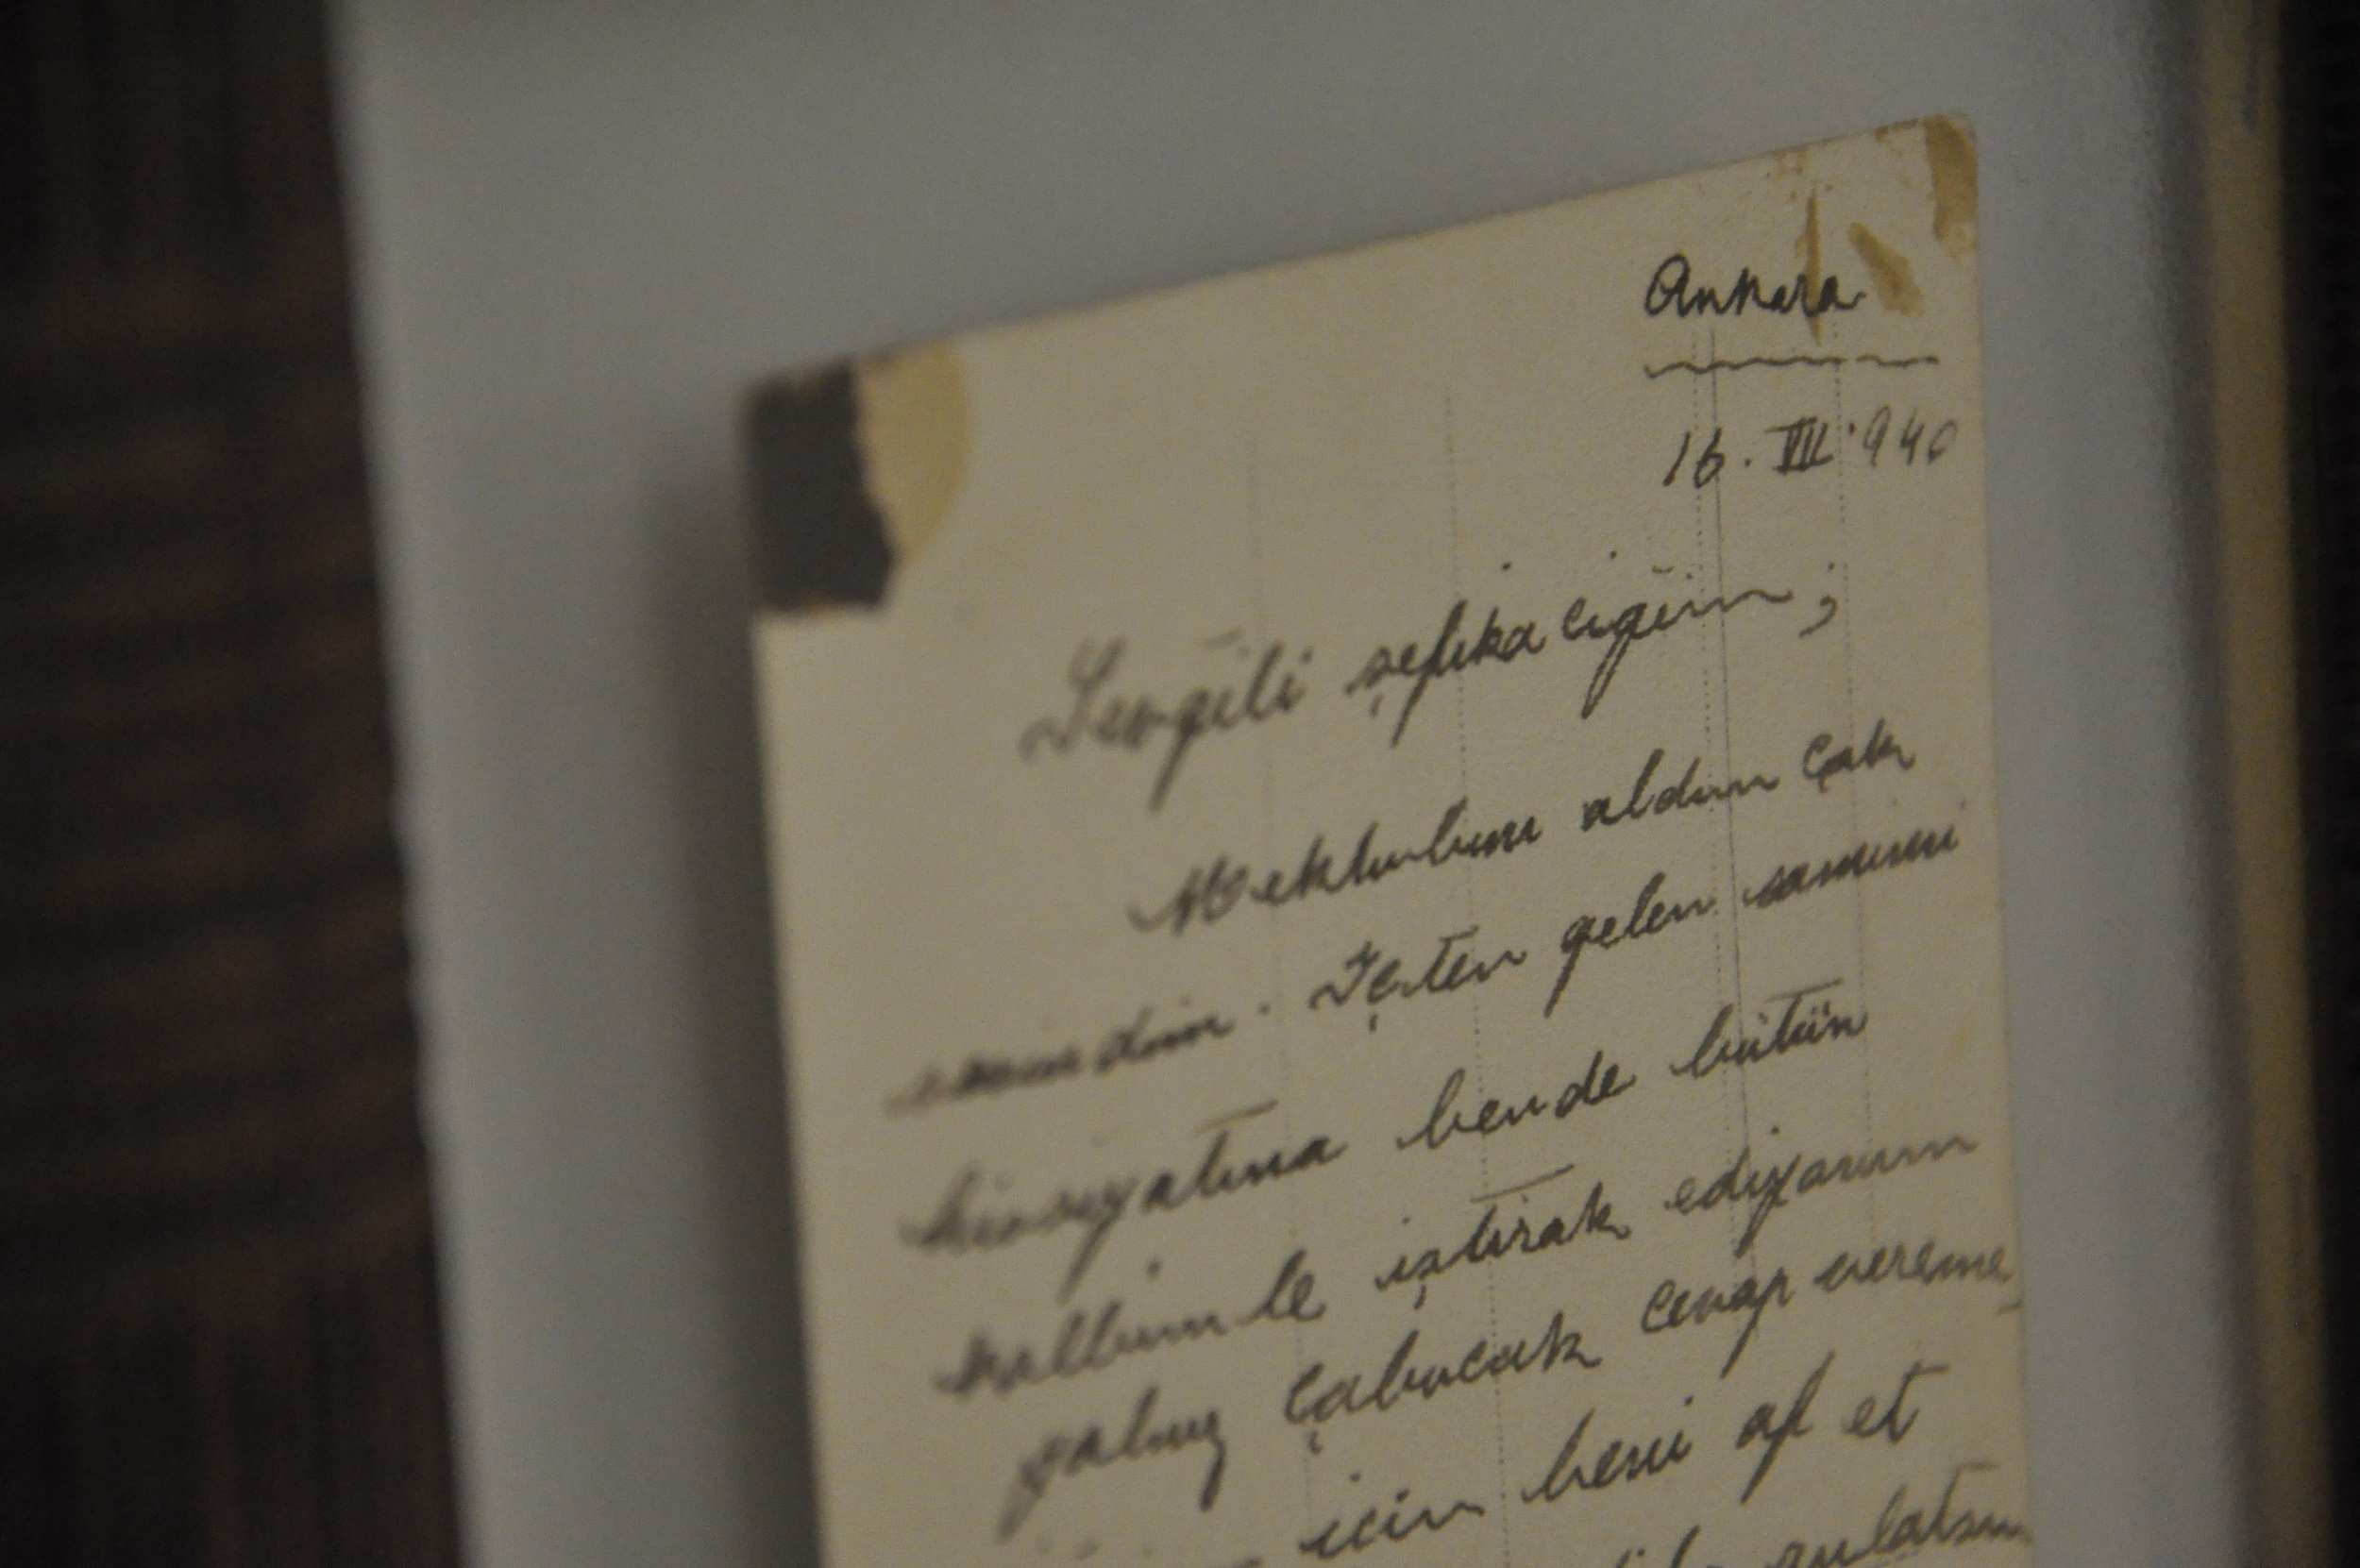 Ankara
16. VII. 940
Sevgili şefikacığım;
Mektubunu aldım çok
sevindim. İçten gelen samimi
hissiyatına bende bütün
kalbimle iştirak ediyorum
yalnız çabucak cevap vereme
için beni af et